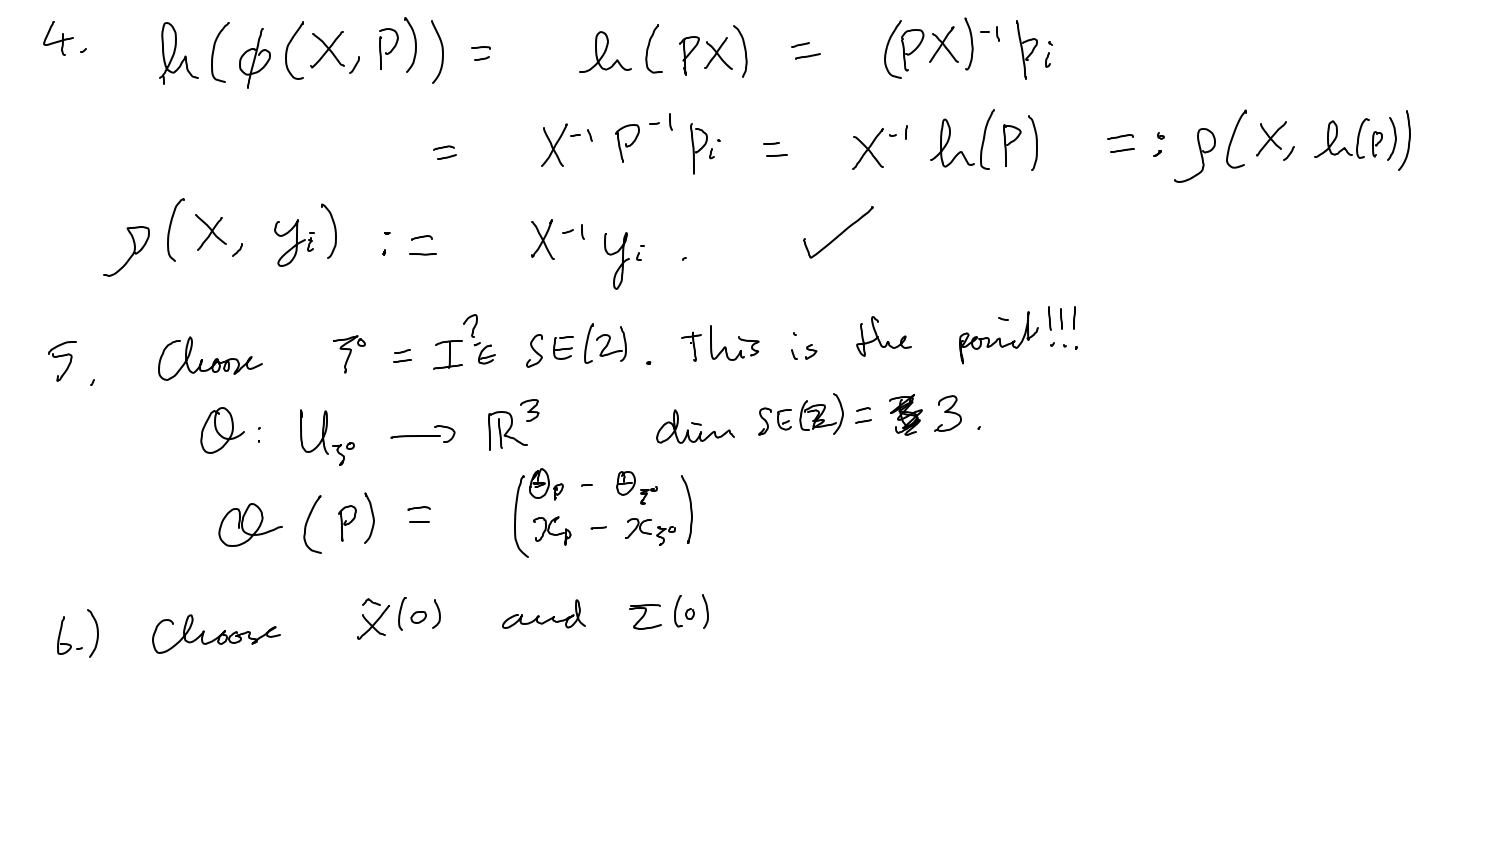 4. h(φ(X, P)) = h(PX) = (PX)⁻¹ p_i
= X⁻¹ P⁻¹ p_i = X⁻¹ h(P) =: ρ(X, h(P))
ρ(X, y_i) := X⁻¹ y_i. ✓
5. Choose ξ° = I ∈? SE(2). This is the point!!!
ϑ: U_ξ° → ℝ³ dim SE(2) = 3.
ϑ(P) = (θ_P − θ_ξ°
x_P − x_ξ°)
6.) Choose X̂(0) and Σ(0)